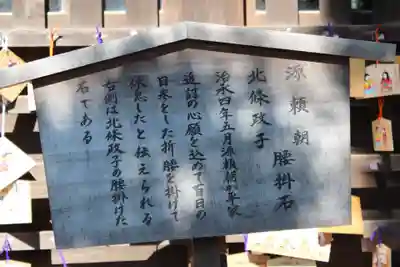 源頼朝
北條政子 腰掛石
治承四年五月源頼朝が平家
追討の心願を込めて百日の
日参をした折腰を掛けて
休息したと伝えられる
右側は北條政子の腰掛けた
石である